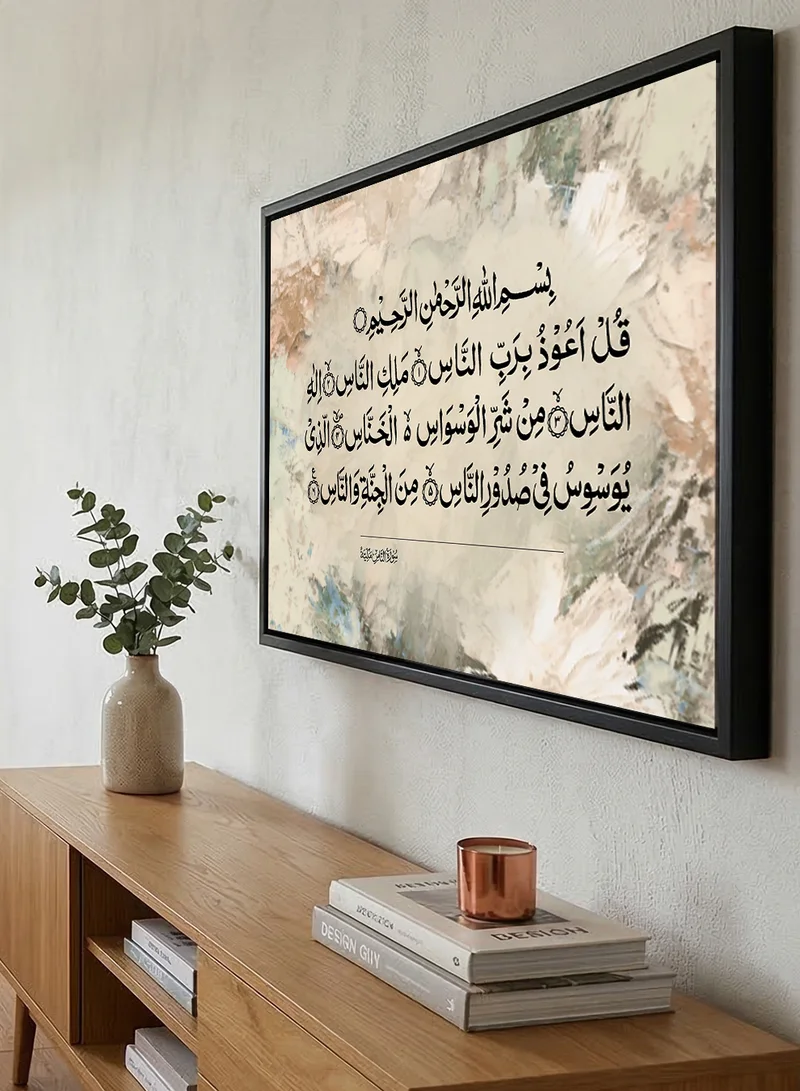 بِسْــمِ اللهِ الرَّحْمٰنِ الرَّحِيْمِ
قُلْ اَعُوْذُ بِرَبِّ النَّاسِ ١ مَلِكِ النَّاسِ ٢ اِلٰهِ
النَّاسِ ٣ مِنْ شَرِّ الْوَسْوَاسِ ۙ الْخَنَّاسِ ٤ الَّذِىْ
يُوَسْوِسُ فِىْ صُدُوْرِ النَّاسِ ٥ مِنَ الْجِنَّةِ وَالنَّاسِ ٦
DESIGN
DESIGN GUY